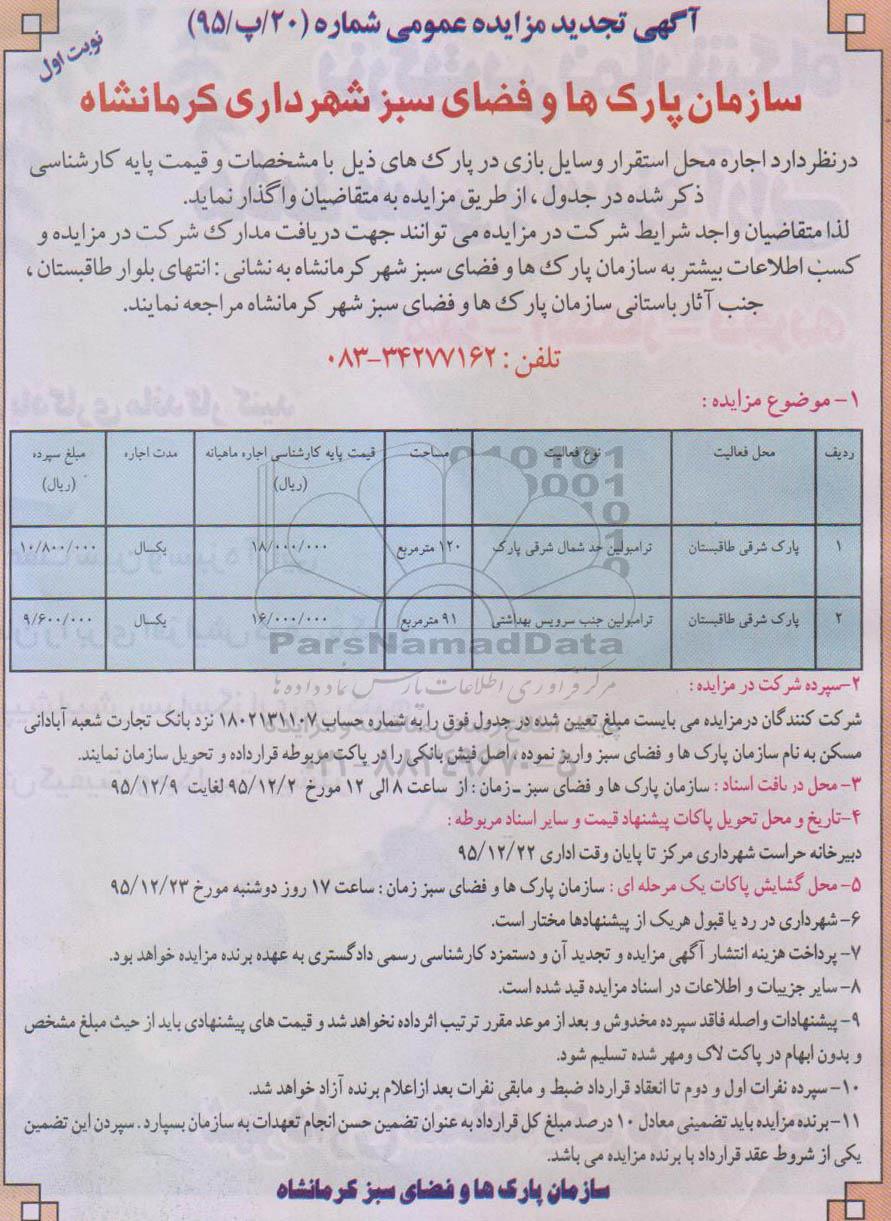 آگهی تجدید مزایده عمومی شماره (۲۰/پ/۹۵)
نوبت اول
سازمان پارک ها و فضای سبز شهرداری کرمانشاه
درنظر دارد اجاره محل استقرار وسایل بازی در پارک های ذیل با مشخصات و قیمت پایه کارشناسی
ذکر شده در جدول ، از طریق مزایده به متقاضیان واگذار نماید.
لذا متقاضیان واجد شرایط شرکت در مزایده می توانند جهت دریافت مدارک شرکت در مزایده و
کسب اطلاعات بیشتر به سازمان پارک ها و فضای سبز شهر کرمانشاه به نشانی : انتهای بلوار طاقبستان ،
جنب آثار باستانی سازمان پارک ها و فضای سبز شهر کرمانشاه مراجعه نمایند.
تلفن : ۳۴۲۷۷۱۶۲-۰۸۳
۱- موضوع مزایده :
ردیف محل فعالیت نوع فعالیت مساحت قیمت پایه کارشناسی اجاره ماهیانه (ریال) مدت اجاره مبلغ سپرده (ریال)
۱ پارک شرقی طاقبستان ترامبولین ضد شمال شرقی پارک ۱۲۰ مترمربع ۱۸/۰۰۰/۰۰۰ یکسال ۱۰/۸۰۰/۰۰۰
۲ پارک شرقی طاقبستان ترامبولین جنب سرویس بهداشتی ۹۱ مترمربع ۱۶/۰۰۰/۰۰۰ یکسال ۹/۶۰۰/۰۰۰
ParsNamadData
مرکز فرآوری اطلاعات پارس نماد داده ها
۲-سپرده شرکت در مزایده :
شرکت کنندگان درمزایده می بایست مبلغ تعیین شده در جدول فوق را به شماره حساب ۱۸۰۲۱۳۱۱۰۷ نزد بانک تجارت شعبه آبادانی
مسکن به نام سازمان پارک ها و فضای سبز واریز نموده ، اصل فیش بانکی را در پاکت مربوطه قرارداده و تحویل سازمان نمایند.
۳- محل دریافت اسناد : سازمان پارک ها و فضای سبز ـ زمان : از ساعت ۸ الی ۱۲ مورخ ۹۵/۱۲/۲ لغایت ۹۵/۱۲/۹
۴-تاریخ و محل تحویل پاکات پیشنهاد قیمت و سایر اسناد مربوطه :
دبیرخانه حراست شهرداری مرکز تا پایان وقت اداری ۹۵/۱۲/۲۲
۵- محل گشایش پاکات یک مرحله ای : سازمان پارک ها و فضای سبز زمان : ساعت ۱۷ روز دوشنبه مورخ ۹۵/۱۲/۲۳
۶- شهرداری در رد یا قبول هریک از پیشنهادها مختار است.
۷- پرداخت هزینه انتشار آگهی مزایده و تجدید آن و دستمزد کارشناسی رسمی دادگستری به عهده برنده مزایده خواهد بود.
۸- سایر جزییات و اطلاعات در اسناد مزایده قید شده است.
۹- پیشنهادات واصله فاقد سپرده مخدوش و بعد از موعد مقرر ترتیب اثرداده نخواهد شد و قیمت های پیشنهادی باید از حیث مبلغ مشخص
و بدون ابهام در پاکت لاک ومهر شده تسلیم شود.
۱۰- سپرده نفرات اول و دوم تا انعقاد قرارداد ضبط و مابقی نفرات بعد ازاعلام برنده آزاد خواهد شد.
۱۱- برنده مزایده باید تضمینی معادل ۱۰ درصد مبلغ کل قرارداد به عنوان تضمین حسن انجام تعهدات به سازمان بسپارد . سپردن این تضمین
یکی از شروط عقد قرارداد با برنده مزایده می باشد.
سازمان پارک ها و فضای سبز کرمانشاه